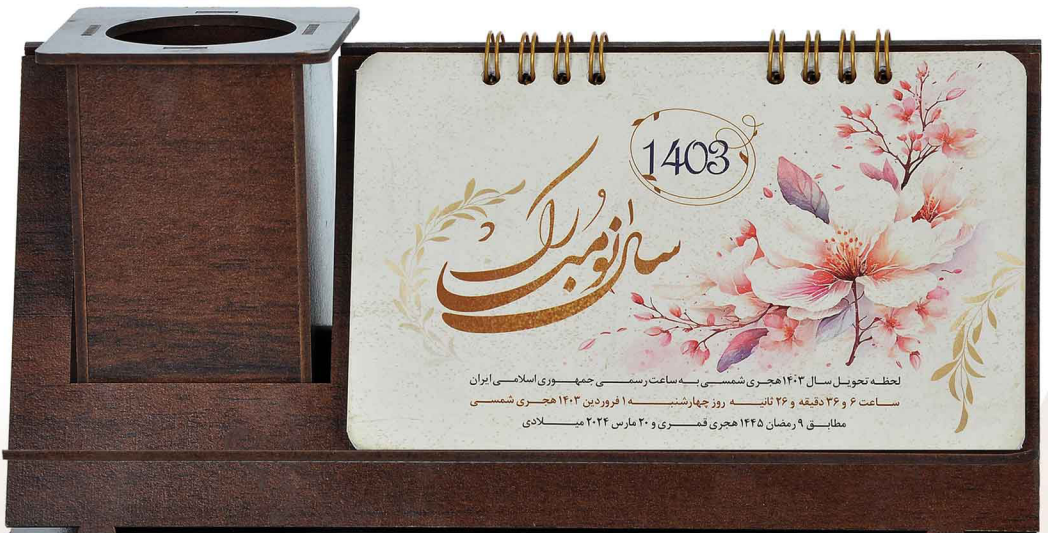 1403
سال نو مبارک
لحظه تحویل سال ۱۴۰۳ هجری شمسی به ساعت رسمی جمهوری اسلامی ایران
ساعت ۶ و ۳۶ دقیقه و ۲۶ ثانیه روز چهارشنبه ۱ فروردین ۱۴۰۳ هجری شمسی
مطابق ۹ رمضان ۱۴۴۵ هجری قمری و ۲۰ مارس ۲۰۲۴ میلادی